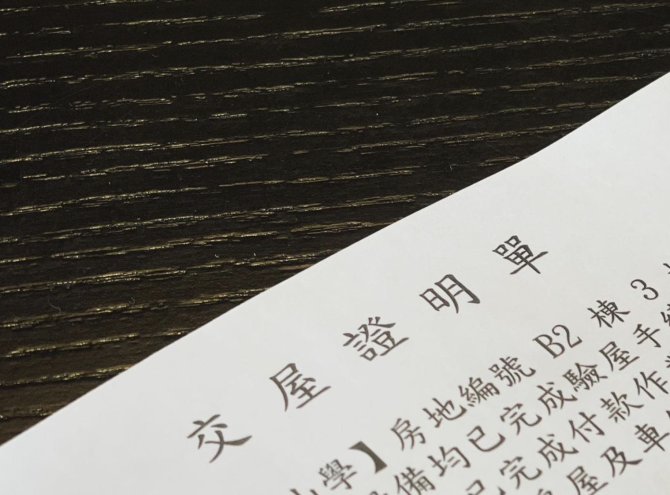 交屋證明單
學】房地編號 B2 棟 3
備均已完成驗屋手
已完成付款作
屋及車